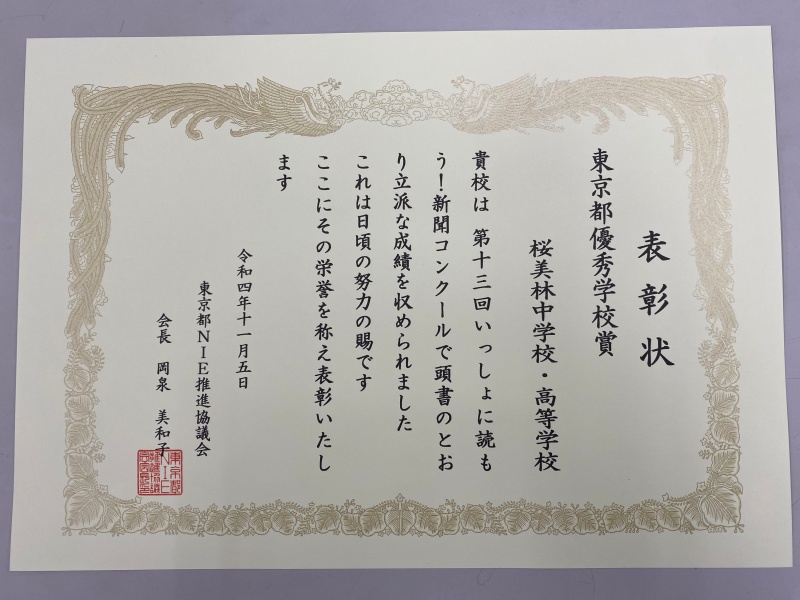 表彰状
東京都優秀学校賞
桜美林中学校・高等学校
貴校は 第十三回いっしょに読も
う！新聞コンクールで頭書のとお
り立派な成績を収められました
これは日頃の努力の賜です
ここにその栄誉を称え表彰いたし
ます
令和四年十一月五日
東京都NIE推進協議会
会長 岡泉 美和子